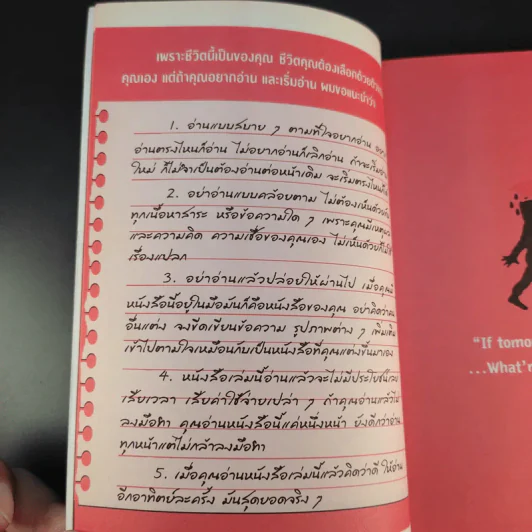 เพราะชีวิตนี้เป็นของคุณ ชีวิตคุณต้องเลือกด้วยตัว
คุณเอง แต่ถ้าคุณอยากอ่าน และเริ่มอ่าน ผมขอแนะนำว่า
1. อ่านแบบสบาย ๆ ตามที่ใจอยากอ่าน
อ่านตรงไหนก็อ่าน ไม่อยากอ่านก็เลิกอ่าน ถ้าจะเริ่ม
ใหม่ ก็ไม่จำเป็นต้องอ่านต่อหน้าเดิม จะเริ่มตรงไหนก็
2. อย่าอ่านแบบคล้อยตาม ไม่ต้องเห็นด้วยกับ
ทุกเนื้อหาสาระ หรือข้อความใด ๆ เพราะคุณมีเหตุผล
และความคิด ความเชื่อของคุณเอง ไม่เห็นด้วยก็ไม่ใช่
เรื่องแปลก
3. อย่าอ่านแล้วปล่อยให้ผ่านไป เมื่อคุณมี
หนังสือนี้อยู่ในมือมันก็คือหนังสือของคุณ อย่าคิดว่าคน
อื่นแต่ง จงขีดเขียนข้อความ รูปภาพต่าง ๆ เพิ่มเติม
เข้าไปตามใจเหมือนกับเป็นหนังสือที่คุณแต่งขึ้นมาเอง
4. หนังสือเล่มนี้อ่านแล้วจะไม่มีประโยชน์เลย
เสียเวลา เสียค่าใช้จ่ายเปล่า ๆ ถ้าคุณอ่านแล้วไม่
ลงมือทำ คุณอ่านหนังสือนี้แค่หนึ่งหน้า ยังดีกว่าอ่าน
ทุกหน้าแต่ไม่กล้าลงมือทำ
5. เมื่อคุณอ่านหนังสือเล่มนี้แล้วคิดว่าดี ให้อ่าน
อีกอาทิตย์ละครั้ง มันสุดยอดจริง ๆ
"If tomo
...What'r